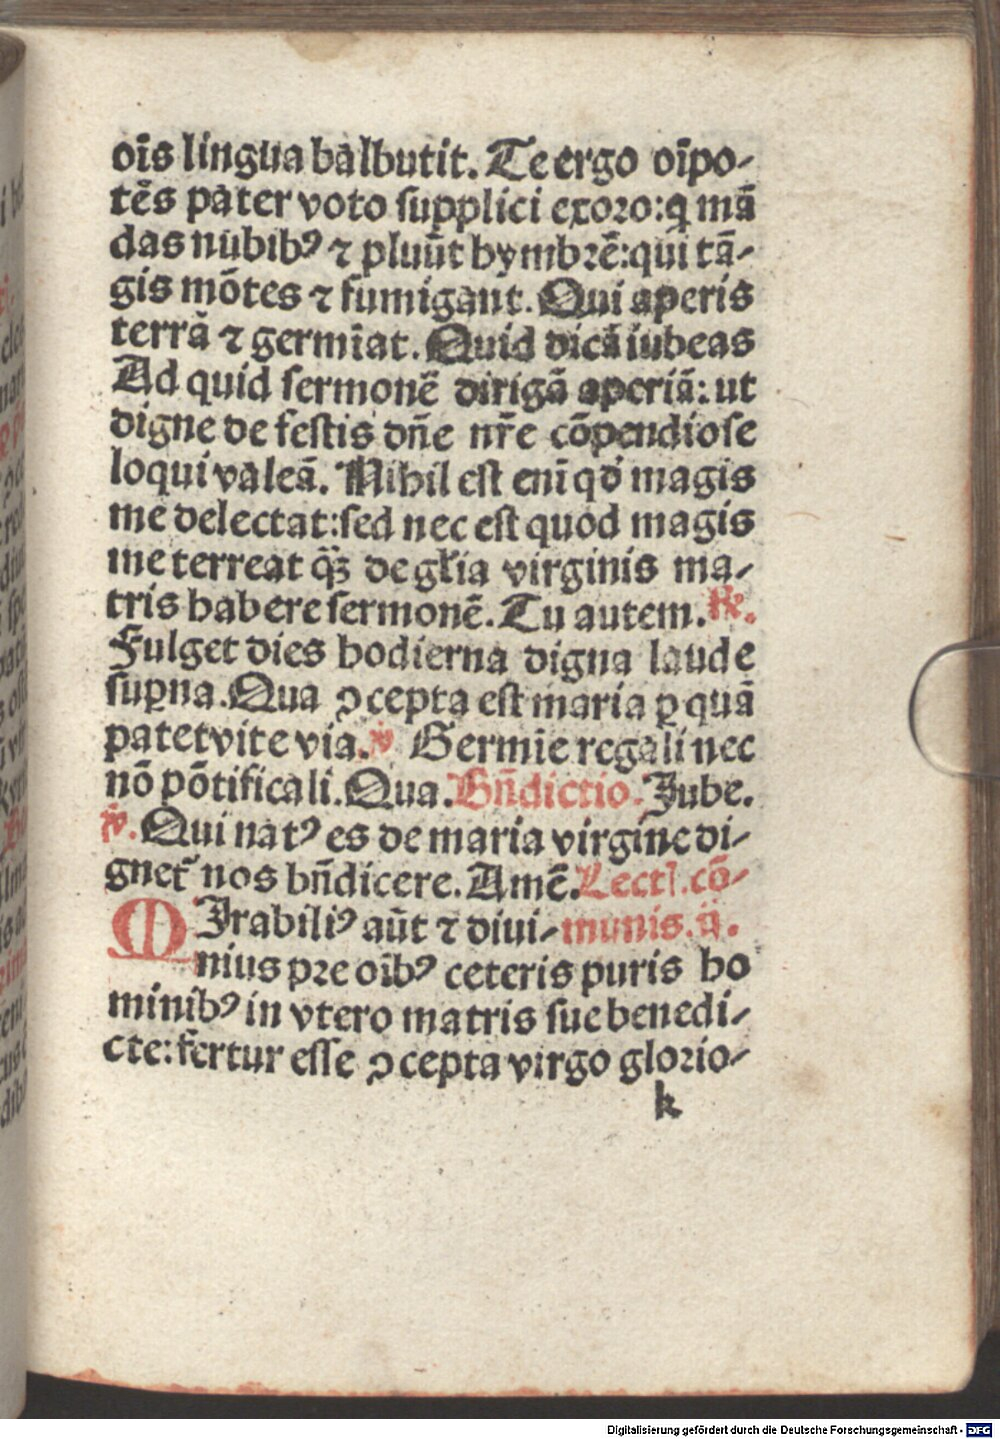 oı̄s lingua balbutit. Te ergo oı̄po-
tēs pater voto ſupplici exoꝛo: q̨ mā
das nubibꝰ ⁊ pluūt hymbꝛē: qui tā-
gis mōtes ⁊ fumigant. Qui aperis
terrā ⁊ germı̄at. Quid dicā iubeas
Ad quid ſermonē dirigā aperiā: ut
digne de feſtis dn̄e nr̄e cōpendioſe
loqui valeā. Nihil eſt eni̅ qd̛ magis
me delectat: ſed nec eſt quod magis
me terreat q̄ꝫ de gl̄ia virginis ma-
tris habere ſermonē. Tu autem. ℟.
Fulget dies hodierna digna laude
ſuꝑna. Qua ꝯcepta eſt maria ꝑ quā
patet vite via. ℣ Germı̄e regali nec
nō pōtificali. Qua. Bn̄dictio. Jube.
℣. Qui natꝰ es de maria virgine di-
gnet᷑ nos bn̄dicere. Amē. Lectı̄. cō-
MJrabiliꝰ aūt ⁊ diui- munis. ij.
nius pre oı̄bꝰ ceteris puris ho
minibꝰ in vtero matris ſue benedi-
cte: fertur eſſe ꝯcepta virgo gloꝛio-
k
Digitalisierung gefördert durch die Deutsche Forschungsgemeinschaft - DFG